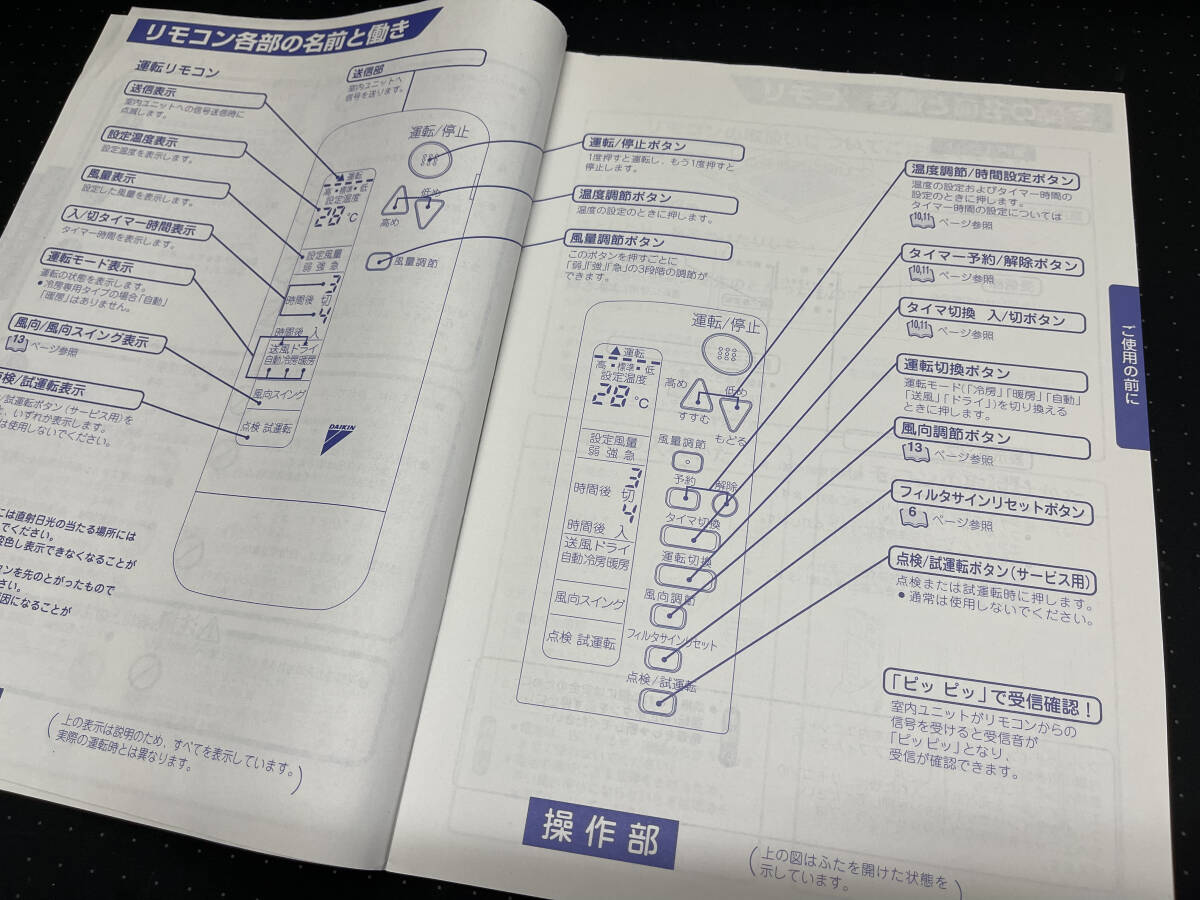 リモコン各部の名前と働き
運転リモコン
送信部
室内ユニットへ
信号を送ります。
送信表示
室内ユニットへの信号送信時に
点滅します。
設定温度表示
設定温度を表示します。
風量表示
設定した風量を表示します。
入/切タイマー時間表示
タイマー時間を表示します。
運転モード表示
運転の状態を表示します。
●冷房専用タイプの場合「自動」
「暖房」はありません。
風向/風向スイング表示
13 ページ参照
点検/試運転表示
/試運転ボタン(サービス用)を
と、いずれか表示します。
は使用しないでください。
運転/停止
運転
高・標準・低
設定温度
28℃
高め
低め
設定風量
弱 強 急
風量調節
3
時間後 切
4
時間後 入
送風ドライ
自動冷房暖房
風向スイング
点検 試運転
DAIKIN
には直射日光の当たる場所には
でください。
変色し表示できなくなることが
ンを先のとがったもので
さい。
因になることが
(上の表示は説明のため、すべてを表示しています。
実際の運転時とは異なります。)
運転/停止ボタン
1度押すと運転し、もう1度押すと
停止します。
温度調節ボタン
温度の設定のときに押します。
風量調節ボタン
このボタンを押すごとに
「弱」「強」「急」の3段階の調節が
できます。
運転/停止
運転
高・標準・低
設定温度
28℃
高め
低め
すすむ
もどる
設定風量
弱 強 急
風量調節
3
時間後 切
4
予約
解除
時間後 入
タイマ切換
送風ドライ
自動冷房暖房
運転切換
風向スイング
風向調節
点検 試運転
フィルタサインリセット
点検/試運転
温度調節/時間設定ボタン
温度の設定およびタイマー時間の
設定のときに押します。
タイマー時間の設定については
10,11 ページ参照
タイマー予約/解除ボタン
10,11 ページ参照
タイマ切換 入/切ボタン
10,11 ページ参照
運転切換ボタン
運転モード(「冷房」「暖房」「自動」
「送風」「ドライ」)を切り換える
ときに押します。
風向調節ボタン
13 ページ参照
フィルタサインリセットボタン
6 ページ参照
点検/試運転ボタン(サービス用)
点検または試運転時に押します。
●通常は使用しないでください。
「ピッ ピッ」で受信確認!
室内ユニットがリモコンからの
信号を受けると受信音が
「ピッ ピッ」となり、
受信が確認できます。
操作部
(上の図はふたを開けた状態を
示しています。)
ご使用の前に